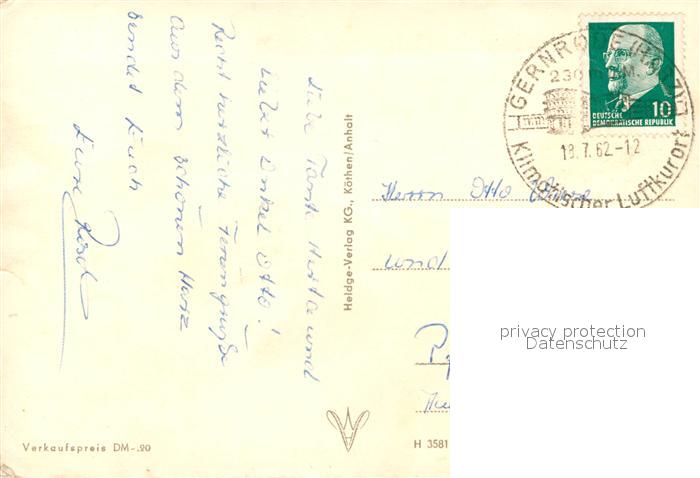 Liebe Tante Herta und
lieber Onkel Otto!
Recht herzliche Feriengrüße
aus dem schönen Harz
sendet Euch
Eure
Verkaufspreis DM-.20
Heldge-Verlag KG., Köthen/Anhalt
H 3581
GERNRODE (HARZ)
230 m ü. M.
18.7.62-12
Klimatischer Luftkurort
10
DEUTSCHE
DEMOKRATISCHE REPUBLIK
Herrn Otto
und
privacy protection
Datenschutz